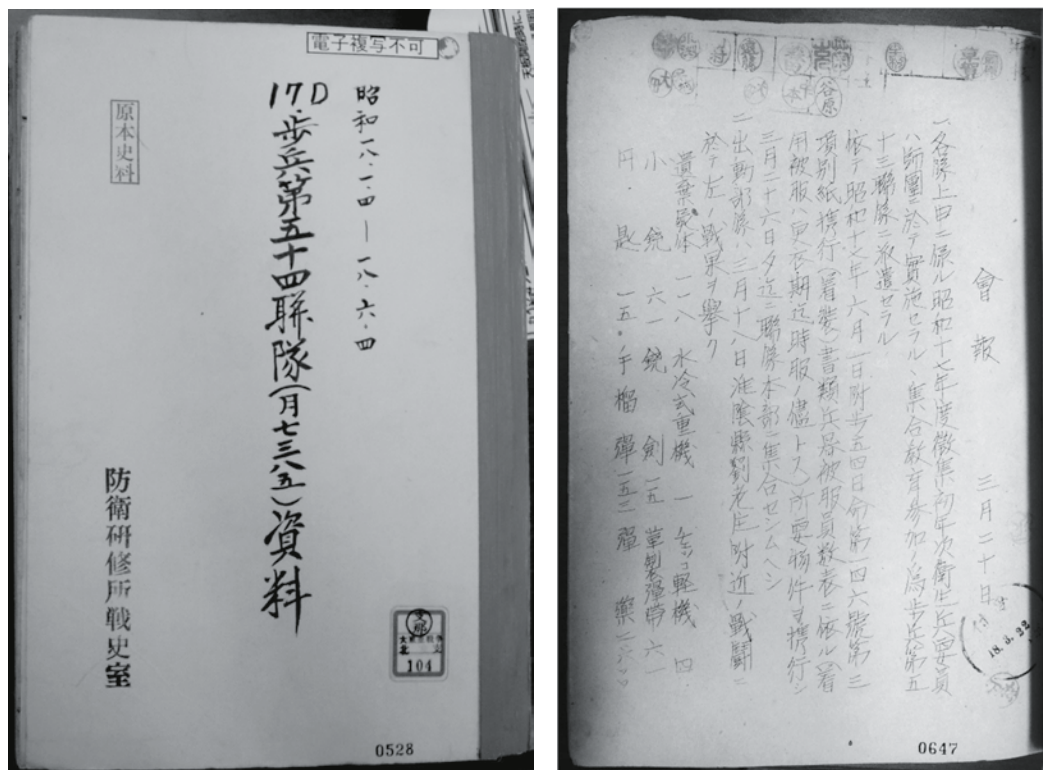 電子複写不可
昭和一八・一・四―一八・六・四
17D・歩兵第五十四聯隊(月七三八五)資料
原本史料
防衛研修所戦史室
支那
104
0528
會報 三月二十日
一、各隊上申ニ係ル昭和十七年度徴集初年次衛生兵要員
ハ師團ニ於テ實施セラル、集合教育参加ノ爲歩兵第五
十三聯隊ニ派遣セラル
依テ昭和十七年六月一日附歩五四日命第一四六號第三
項別紙携行(着装)書類兵器被服員数表ニ依ル(着
用被服ハ更衣期迄時服ノ儘トス)所要物件ヲ携行シ
三月二十六日夕迄ニ聯隊本部ニ集合セシムヘシ
二、出動部隊ハ三月十八日淮陰縣劉老庄附近ノ戰鬪ニ
於テ左ノ戰果ヲ擧ク
遺棄屍体 一一八 水冷式重機 一 チェッコ軽機 四
小銃 六一 銃劍 一五 革製彈帯 六一
円匙 一五 手榴彈 一五三 彈藥
18.3.22
谷原
0647